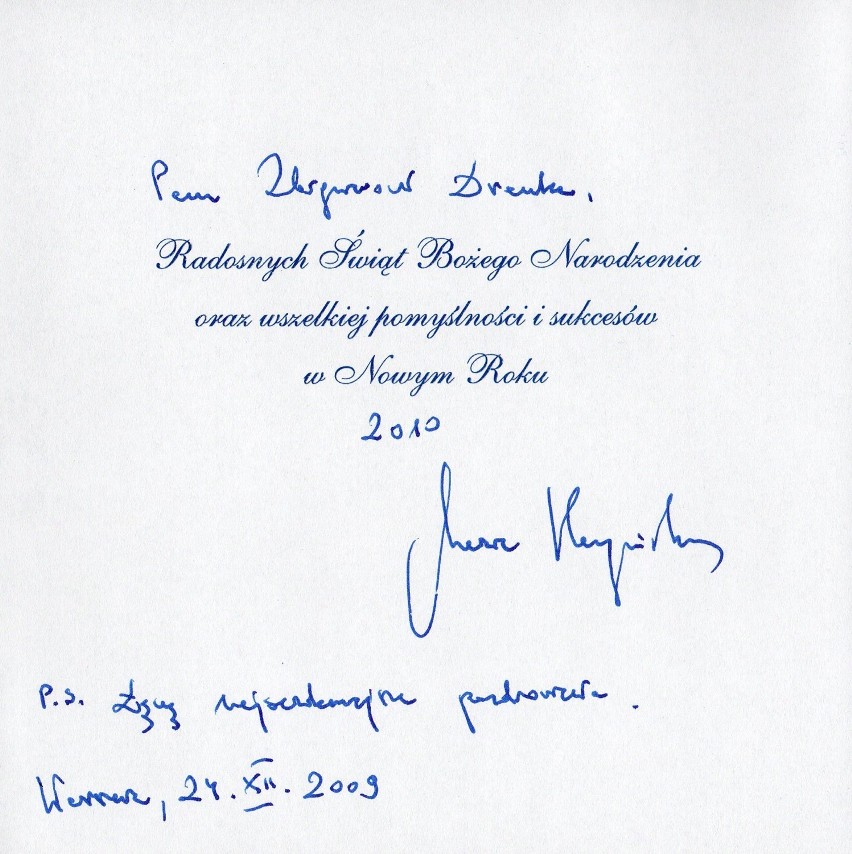 Pan Zbigniew Drenka,
Radosnych Świąt Bożego Narodzenia
oraz wszelkiej pomyślności i sukcesów
w Nowym Roku
2010
P.S. Łączę najserdeczniejsze pozdrowienia.
Warszawa, 24.XII.2009